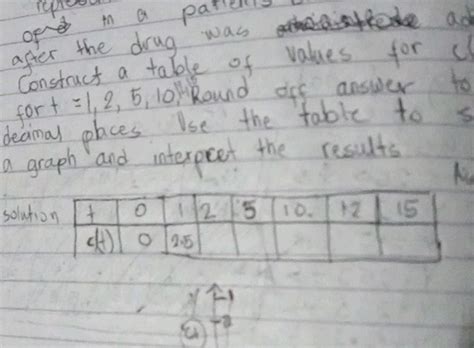 in a patient's
after the drug was
Construct a table of values for
for t = 1, 2, 5, 10, Round off answer to
decimal places Use the table to s
a graph and interpret the results
solution t 0 1 2 5 10. 12 15
c(t) 0 2.5